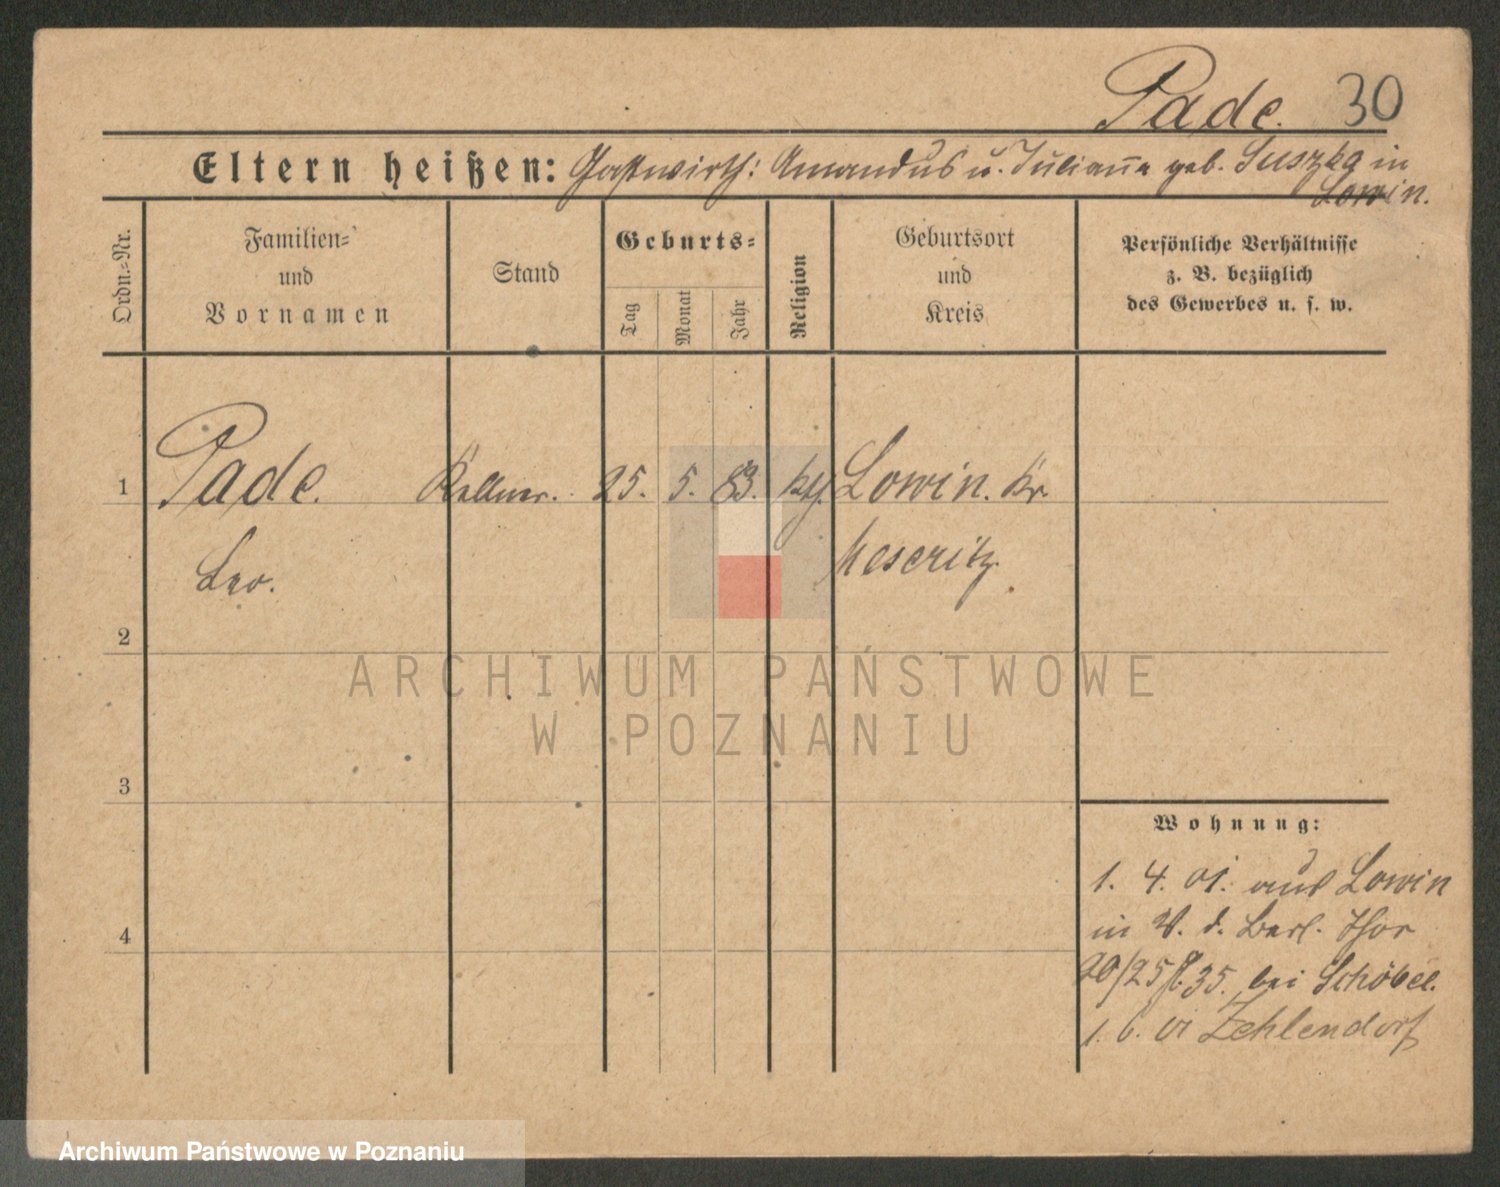 Pade. 30
Eltern heißen: Gastwirth: Amandus u. Juliana geb. Suszka in
Lowin.
Ordn.-Nr.
Familien-
und
Vornamen
Stand
Geburts-
Tag
Monat
Jahr
Religion
Geburtsort
und
Kreis
Persönliche Verhältnisse
z. B. bezüglich
des Gewerbes u. s. w.
1 Pade. Kellner. 25. 5. 83. Lowin. Kr.
Leo. Meseritz.
2
3
4
ARCHIWUM PAŃSTWOWE
W POZNANIU
Wohnung:
1. 4. 01. aus Lowin
in V. d. Berl. Thor
20/25 35. bei Schöbel.
1. 6. 01 Zehlendorf
Archiwum Państwowe w Poznaniu